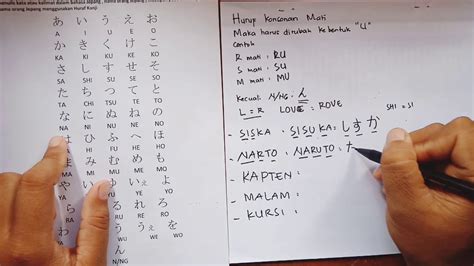 nama orang Jepang menggunakan Huruf Kanji
あ い う え お
A I U E O
か き く け こ
KA KI KU KE KO
さ し す せ そ
SA SHI SU SE SO
た ち つ て と
TA CHI TSU TE TO
な に ぬ ね の
NA NI NU NE NO
は ひ ふ へ ほ
HI FU HE HO
ま み む め も
MI MU ME MO
や ゆ ぇ よ
YU YE YO
る れ ろ
RA RU RE RO
う ぇ を
WU WE WO
ん
N/NG
Hurup Konsonan Mati
Maka harus dirubah kebentuk "U"
Contoh
R mati : RU
S mati : SU
M mati : MU
Kecuali : N/NG : ん
L = R LOVE = ROVE SHI = SI
- SISKA : SISUKA = しすか
- NARTO : NARUTO : な
- KAPTEN :
- MALAM :
- KURSI :